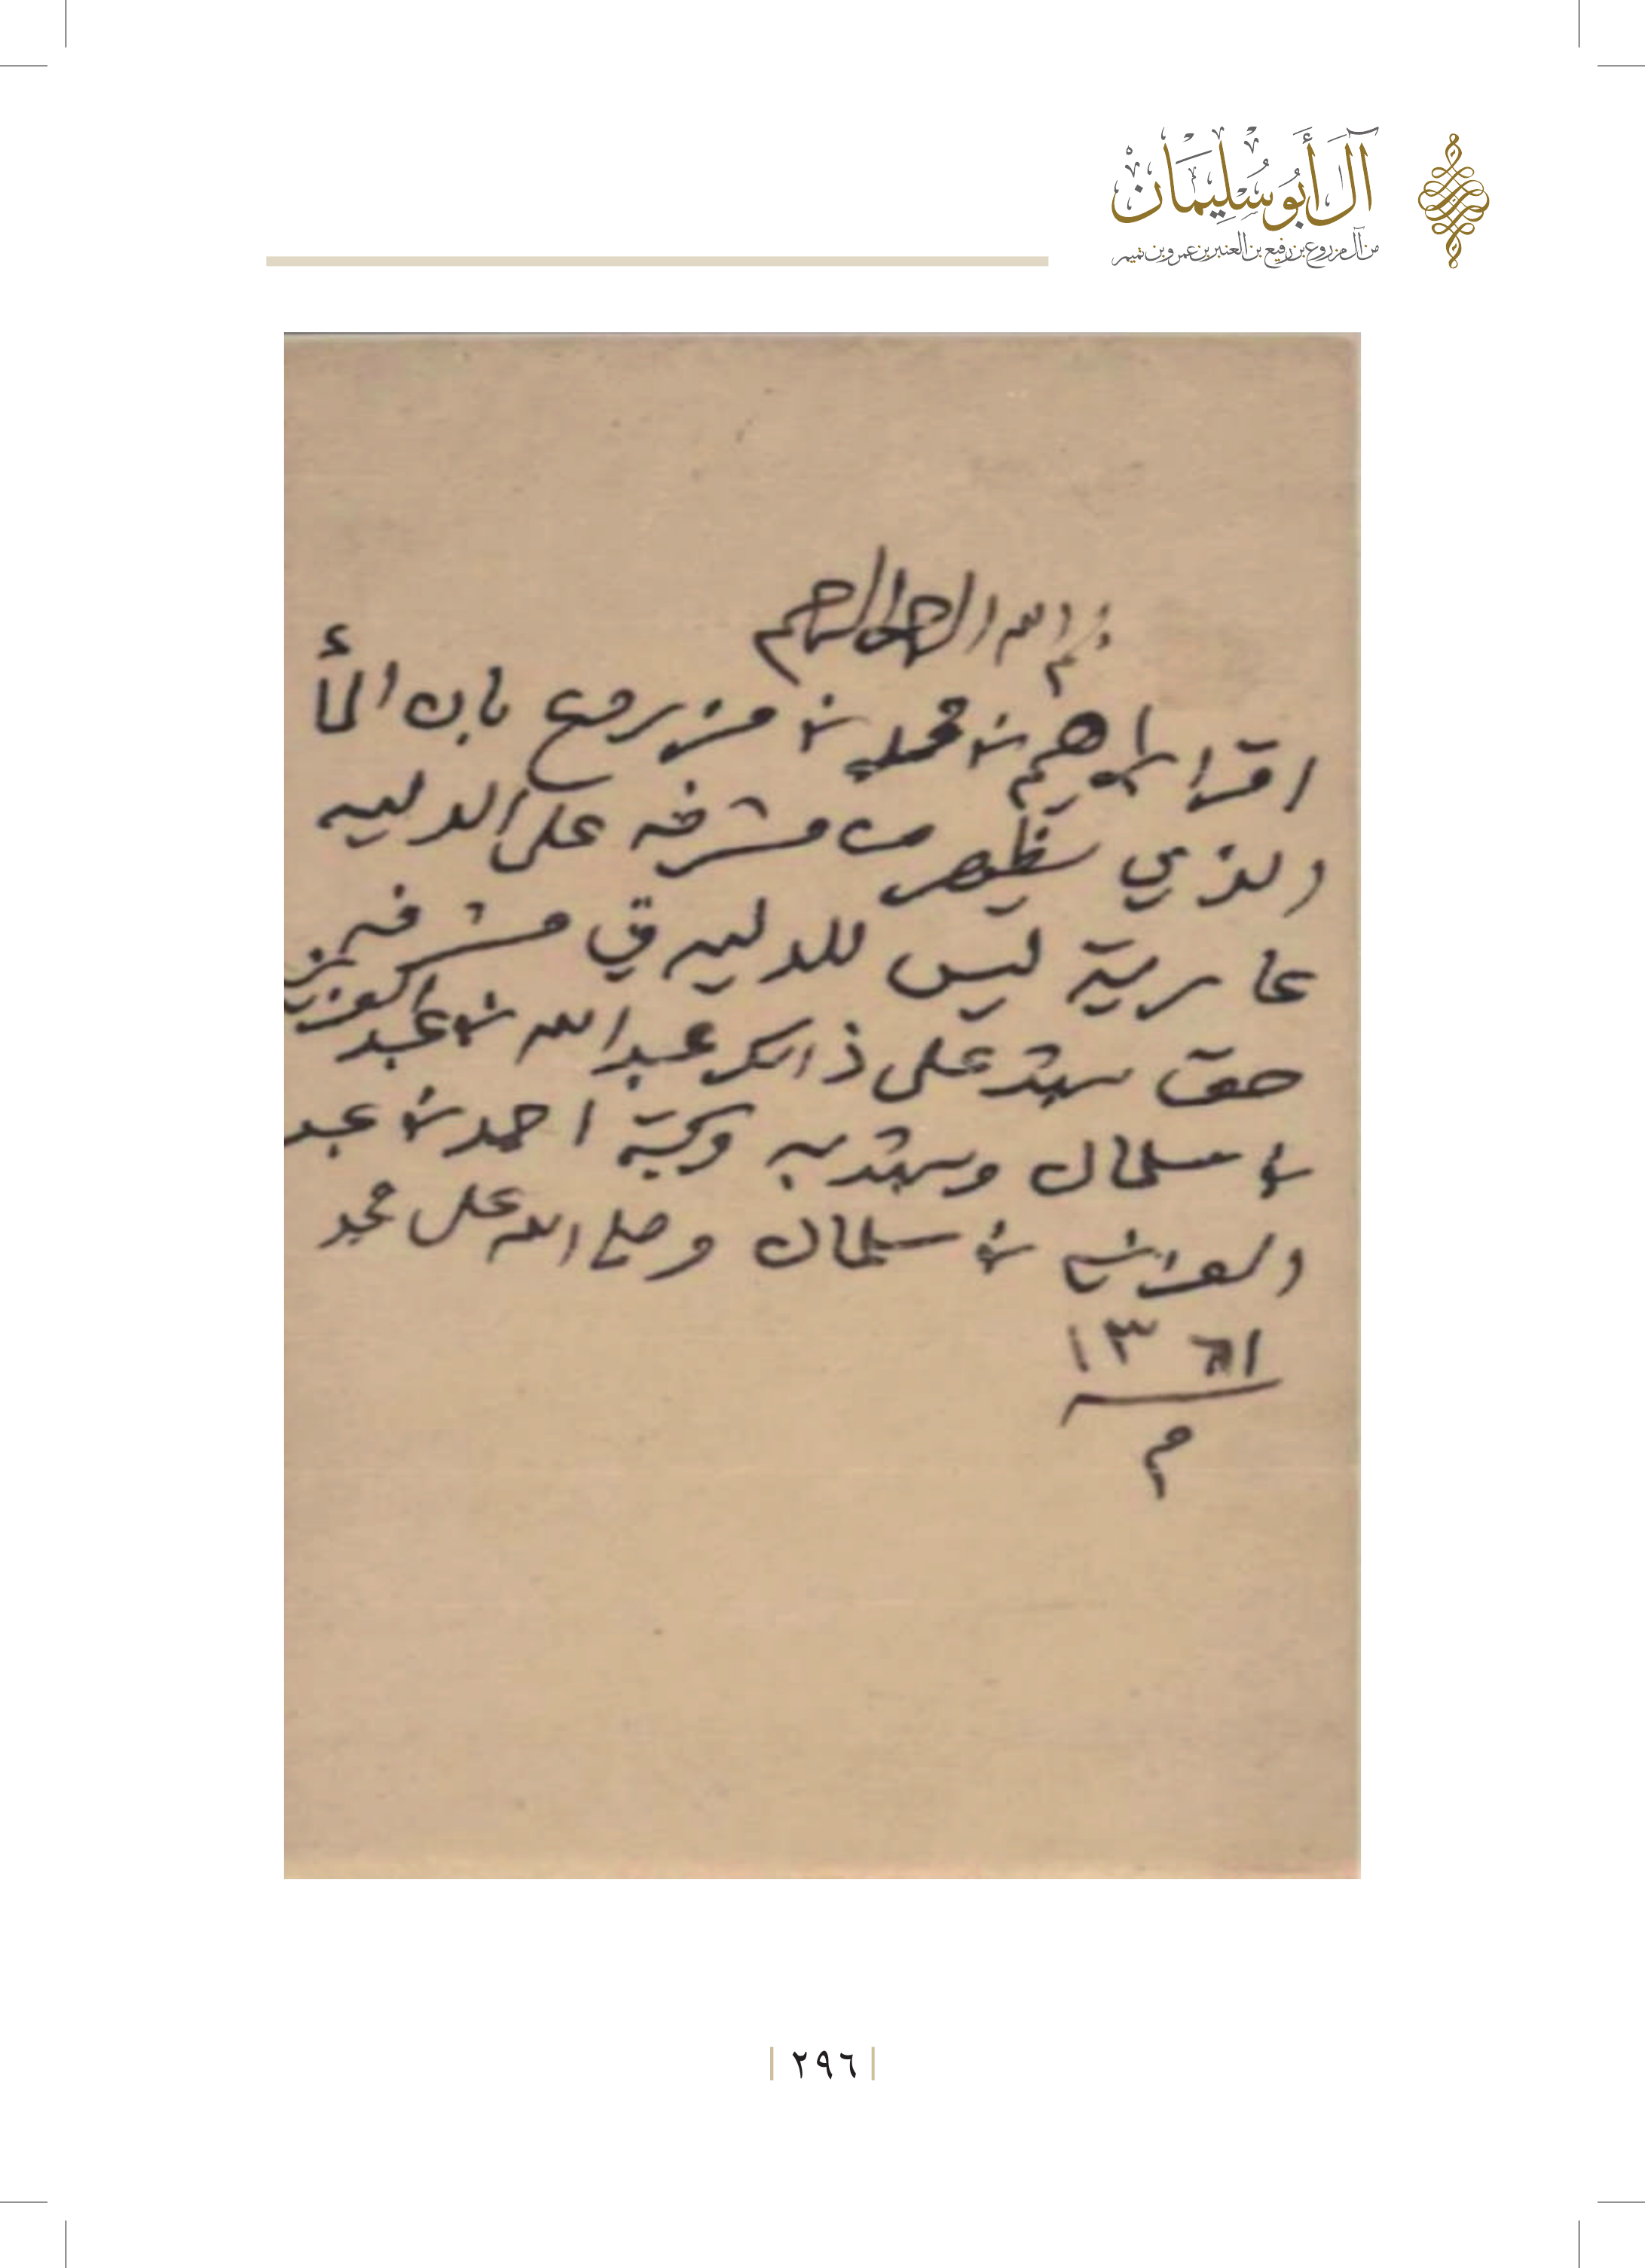 آل أبو سليمان
من آل مزروع بن رفيع بن العنبر بن عمرو بن تميم
بسم الله الرحمن الرحيم
اقر ابراهيم بن محمد بن مزروع بان المأ
الذي يظهر من مشرفه على الدليه
عارية ليس للدليه في مشرفه
حق شهد على ذالك عبد الله بن عبد العزيز
بن سليمان وشهد به وكتبه احمد بن عبد
العزيز بن سليمان وصلى الله على محمد
١٣٦١
م
٢٩٦